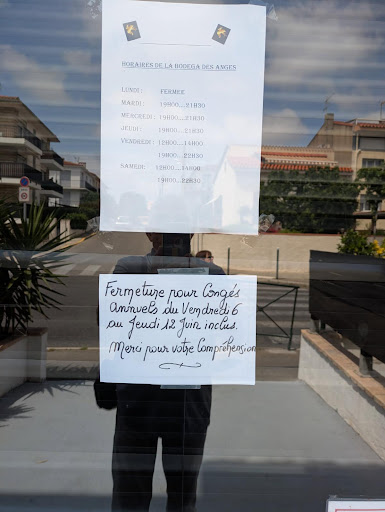 HORAIRES DE LA BODEGA DES ANGES
LUNDI: FERMEE
MARDI: 19H00...21H30
MERCREDI: 19H00...21H30
JEUDI: 19H00...21H30
VENDREDI: 12H00...14H00
19H00...22H30
SAMEDI: 12H00...14H00
19H00...22H30
Fermeture pour Congés
Annuels du Vendredi 6
au Jeudi 12 Juin inclus.
Merci pour votre Compréhension